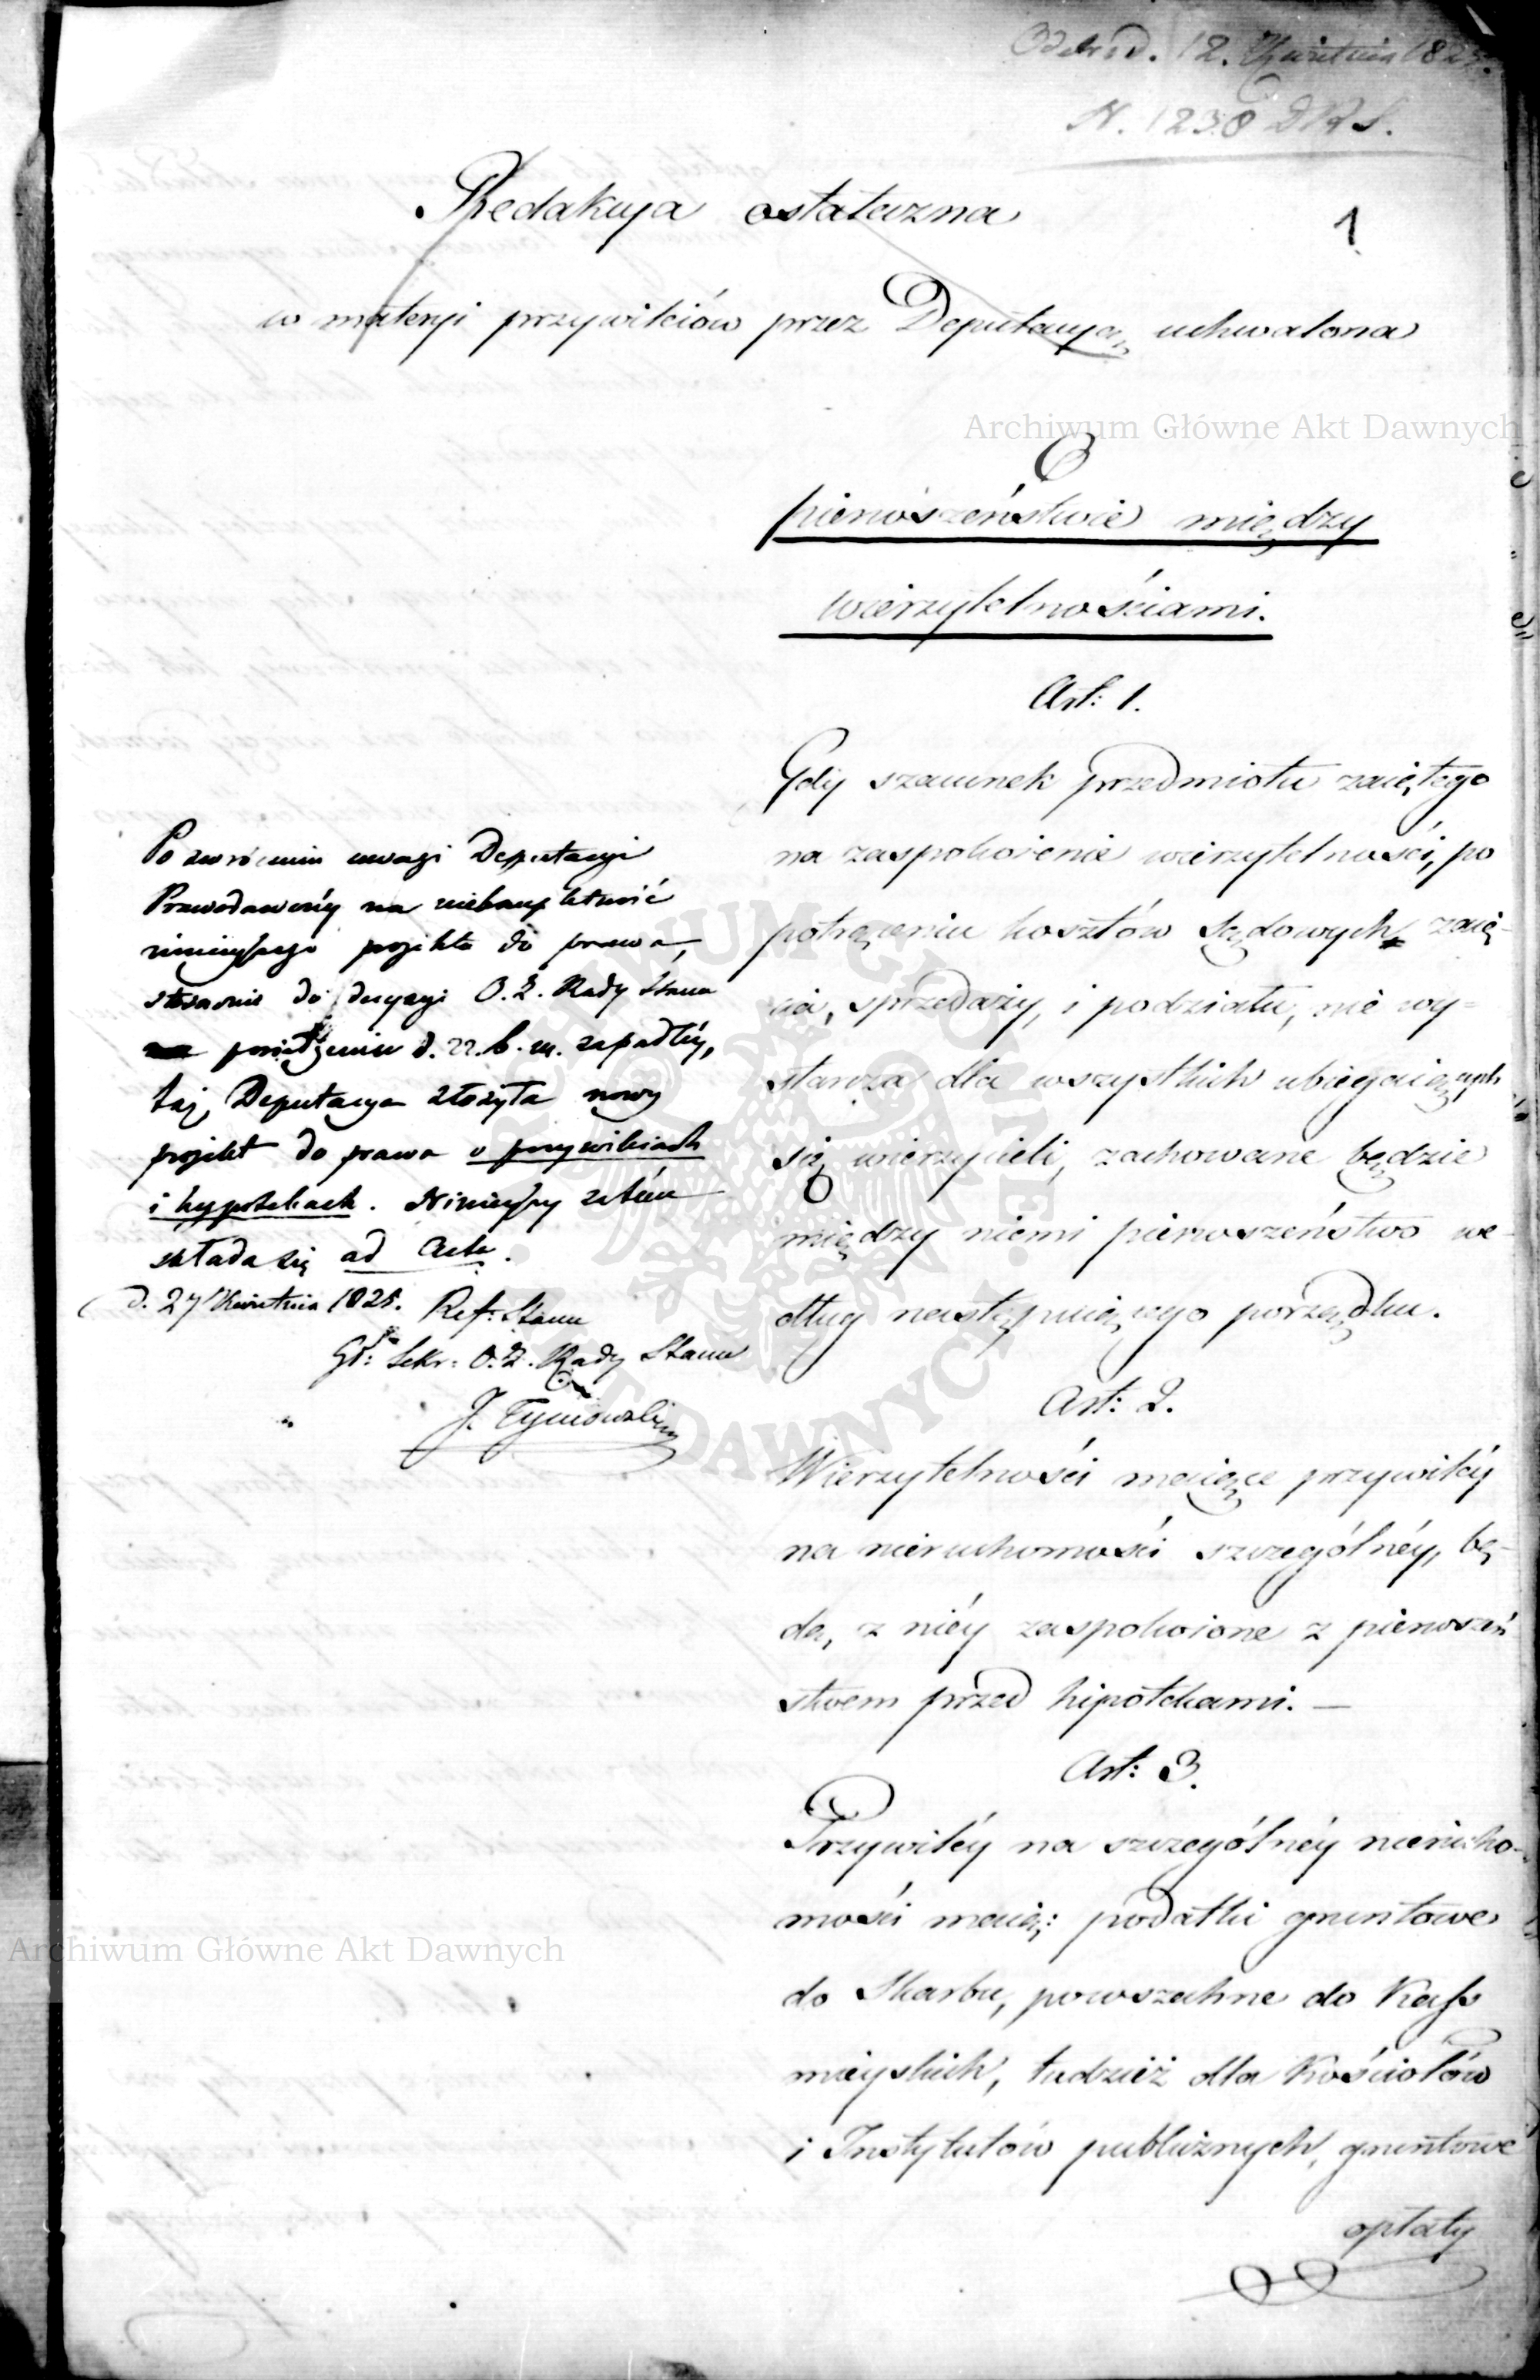 Odebr. d. 12. Kwietnia 1825.
N. 1238 DRS.
1
Redakcya ostateczna
w materyi przywileiów przez Deputacyą uchwalona
Archiwum Główne Akt Dawnych
O
pierwszeństwie między
wierzytelnościami.
Art: 1.
Gdy szacunek przedmiotu zaiętego
na zaspokoienie wierzytelności, po
potrąceniu kosztów sądowych, zaię-
cia, sprzedaży, i podziału, nie wy=
starcza dla wszystkich ubiegaiących
się wierzycieli, zachowane będzie
między niemi pierwszeństwo we-
dług następuiącego porządku.
Art: 2.
Wierzytelności maiące przywiléy
na nieruchomości szczególnéy, bę-
dą, z niéy zaspokoione z pierwszeń
stwem przed hipotekami. —
Art: 3.
Przywiléy na szczególnéy nierucho-
mości maią: podatki gruntowe
do Skarbu, powszechne do Kass
mieyskich, tudzież dla Kościołów
i Instytutów publicznych, gruntowe
opłaty
Po zwróceniu uwagi Deputacyi
Prawodawczéy na niekompletność
ninieyszego projektu do prawa,
stosownie do decyzyi O. Z. Rady Stanu
posiedzeniu d. 22. b. m. zapadłéy,
taż Deputacya złożyła nowy
projekt do prawa o przywileiach
i hypotekach. Ninieyszy zatém
składa się ad Acta.
d. 27 Kwietnia 1825. Ref: Stanu
Sekr: O. Z. Rady Stanu
J. Tymowski
Archiwum Główne Akt Dawnych
ARCHIWUM GŁÓWNE AKT DAWNYCH